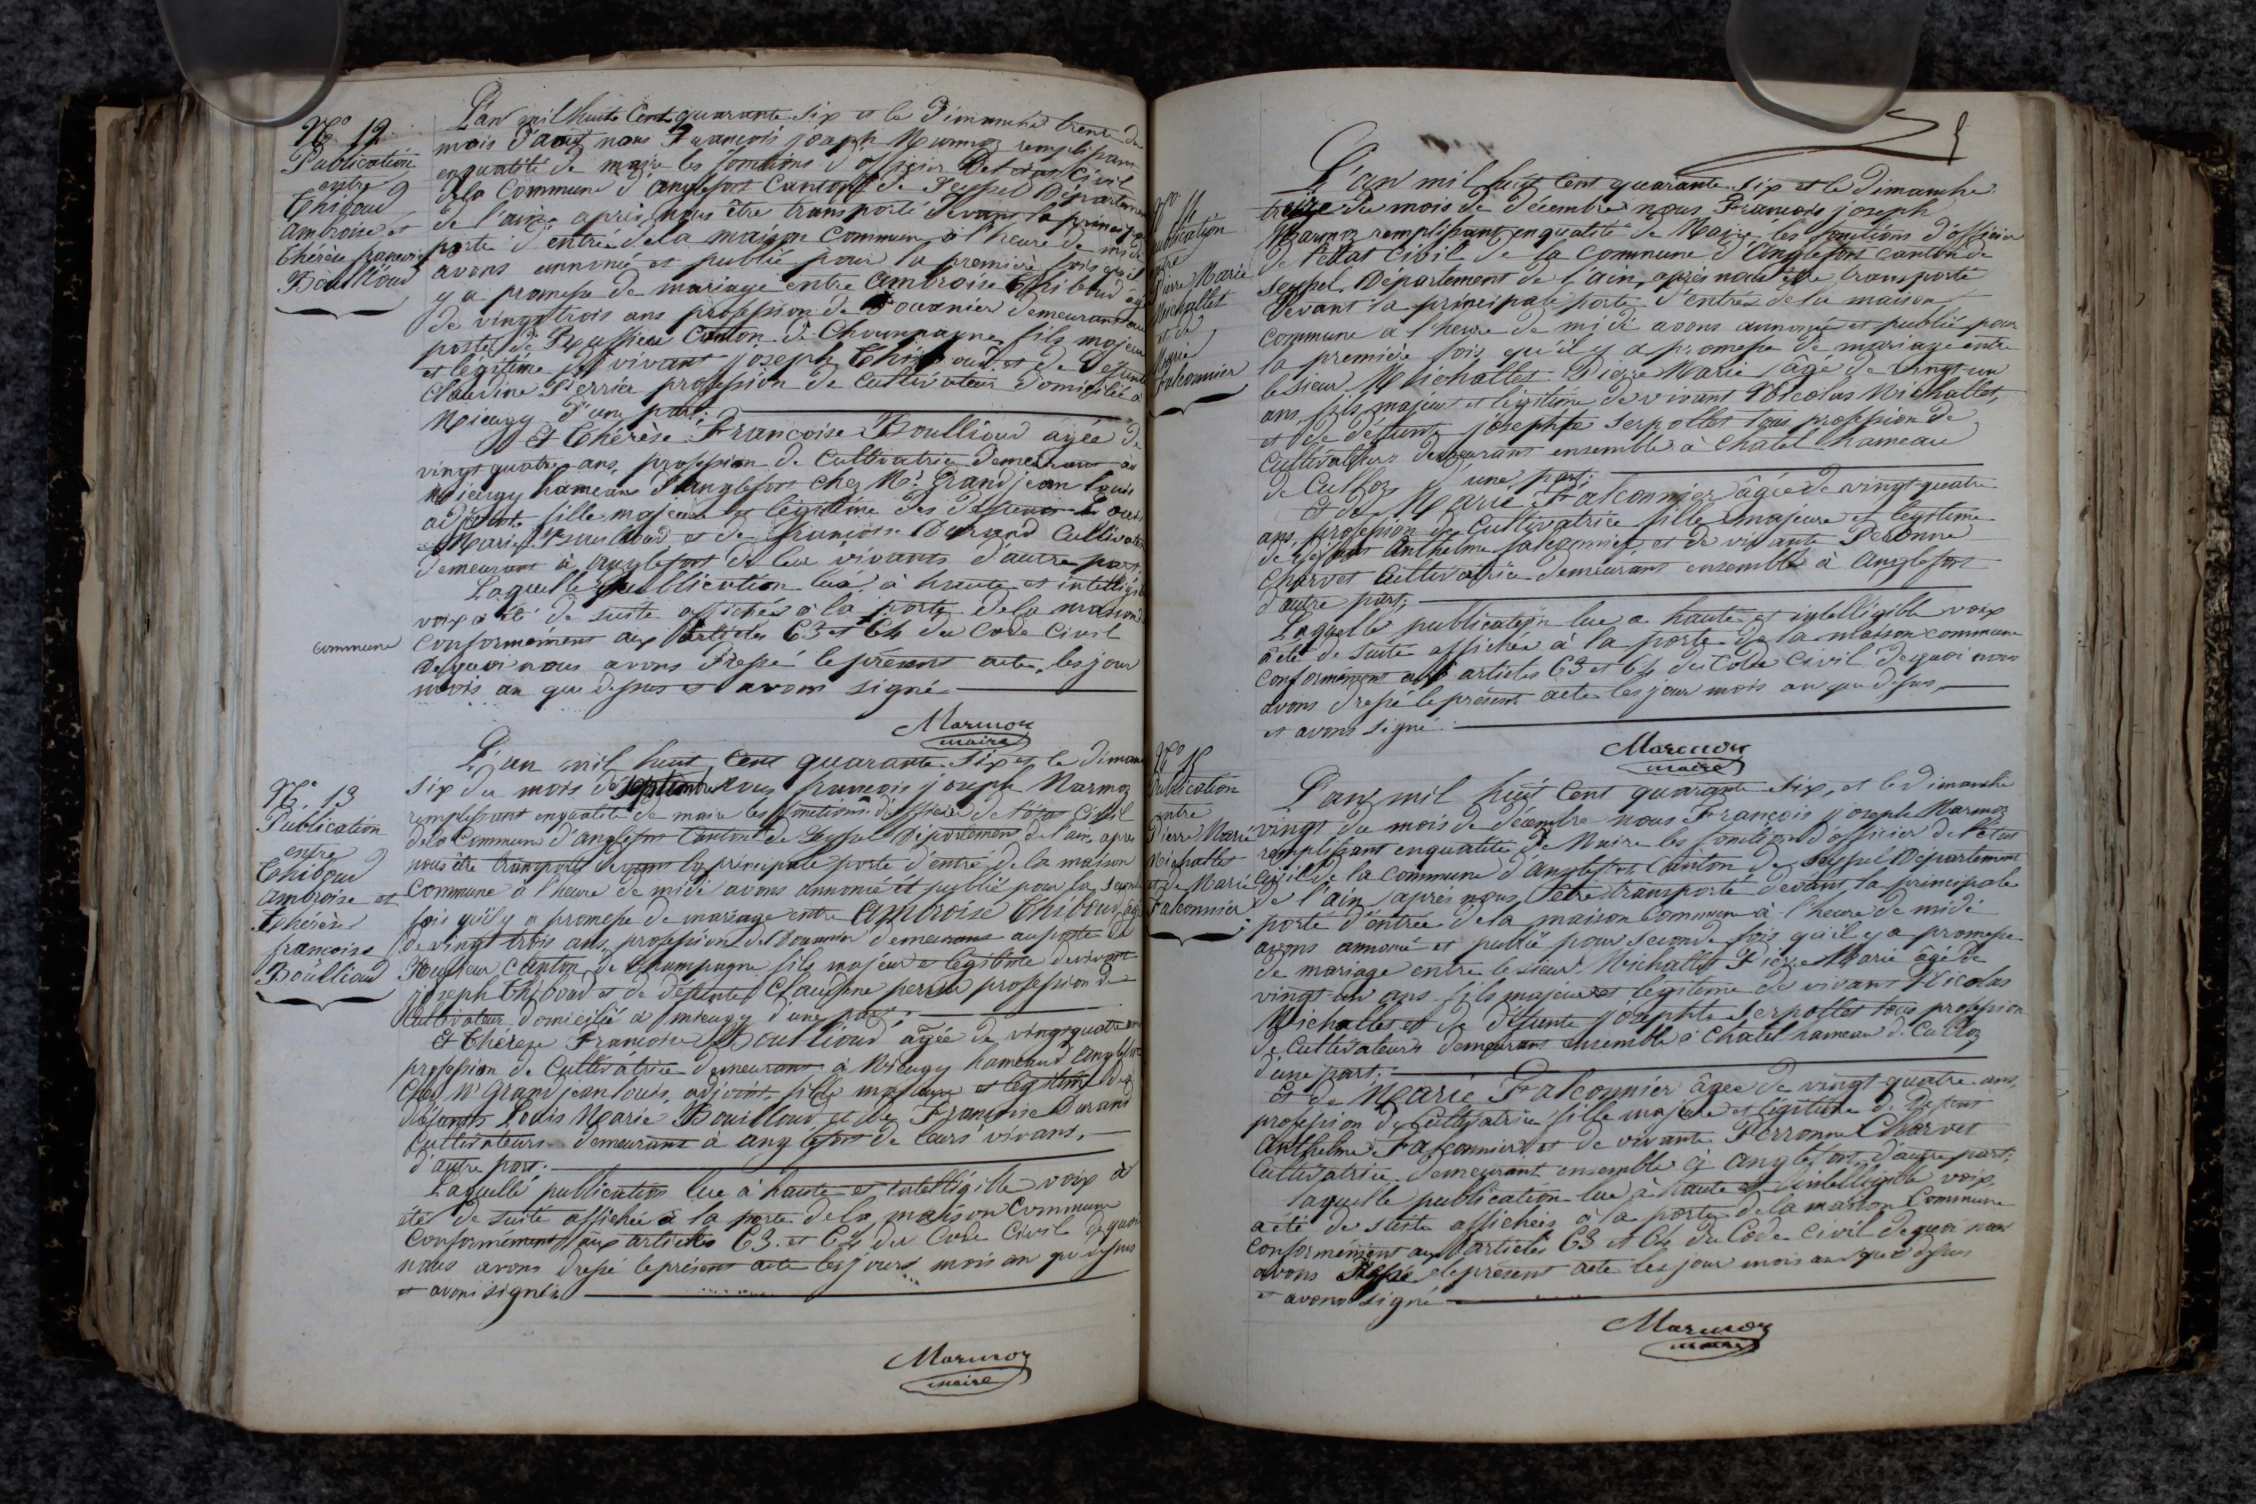 No 12
Publication
entre
Thiboud
ambroise et
thérèse francoise
Boullioud
L'an mil huit Cent quarante six et le Dimanche trente du
mois d'aout nous François joseph Marmoz remplissant
enqualité de maire les fonctions d'officier De l'etat Civil
dela Commune d'anglefort Canton de Seyssel Département
de l'ain, après nous être transporté devant la principale
porte d'entrée dela maison Commune à l'heure de midi
avons annoncé et publié pour la première fois qu'il
y a promesse de mariage entre Ambroise Thiboud âgé
de vingt trois ans profession de Douanier demeurant au
poste de Russieu Canton de Champagne fils majeur
et légitime de vivant joseph Thiboud et de Defunte
Claudine Perrier profession de Cultivateur Domicilié à
Mieugy d'une part;
Et Thérèse Francoise Boullioud agée de
vingt quatre ans, profession de Cultivatrice demeurant à
Mieugy hameau d'anglefort chez Mr. Grandjean louis
adjoint fille majeure et légitime des Defunts Louis
Marie Boullioud et de françoise Durand Cultivateurs
demeurant à anglefort de leur vivants d'autre part
Laquelle publication lue à haute et intelligible
voix a été de suite affichée à la porte dela maison
commune
conformément aux articles 63 et 64 du Code Civil
Dequoi nous avons dressé le présent acte, les jour
mois an que dessus et avons signé
Marmoz
maire
No. 13
Publication
entre
Thiboud
ambroise et
thérèse
francoise
Boullioud
L'an mil huit Cent quarante six et le dimanche
six du mois de septembre nous francois joseph Marmoz
remplissant enqualité de maire les fonctions d'officier de l'état Civil
dela Commune d'anglefort Canton de Seyssel Département de l'ain, après
nous être transporté devant la principale porte d'entré de la maison
Commune à l'heure de midi avons annoncé et publié pour la seconde
fois qu'il y a promesse de mariage entre Ambroise Thiboud âgé
de vingt trois ans, profession de Douanier demeurant au poste de
Russieu Canton de Champagne fils majeur et légitime de vivant
joseph Thiboud et de défunte Claudine perrier profession de
Cultivateur domicilié à mieugy d'une part;
Et thérèse Francoise Boullioud, âgée de vingt quatre ans
profession de Cultivatrice demeurant à Mieugy hameau d'anglefort
Chez Mr Grandjean louis, adjoint, fille majeure et légitime des
défunts Louis Marie Boullioud et de Françoise Durand
Cultivateurs demeurant à anglefort de leurs vivans,
d'autre part.
Laquelle publication lue à haute et intelligible voix a
été de suite affichée à la porte dela maison Commune
Conformément aux articles 63 et 64 du Code Civil dequoi
nous avons dressé le présent acte les jours mois an que dessus
et avons signé
Marmoz
maire
No 14
Publication
entre
Pierre Marie
Michallet
et de
Marie
Falconnier
L'an mil huit Cent quarante six et le dimanche
treize du mois de Décembre nous François joseph
Marmoz remplissant enqualité de Maire les fonctions d'officier
de l'etat Civil de la Commune d'Anglefort canton de
seyssel, Département de l'ain, après nous être transporté
Devant la principale porte d'entrée de la maison
Commune à l'heure de midi avons annoncé et publié pour
la première fois qu'il y a promesse de mariage entre
le sieur Michallet Pierre Marie âgé de vingt un
ans fils majeur et légitime de vivant Nicolas Michallet
et de défunte josephte serpollet tous profession de
Cultivateurs demeurans ensemble à Chatel hameau
de Culloz d'une part;
Et de Marie Falconnier âgée de vingt quatre
ans, profession de Cultivatrice fille majeure et légitime
de défunt Anthelme falconnier et de vivante Peronne
Charvet Cultivatrice demeurans ensemble à Anglefort
d'autre part;
Laquelle publication lue a haute et intelligible voix
a été de suite affichée à la porte de la maison commune
conformément aux articles 63 et 64 du Code Civil Dequoi nous
avons dressé le présent acte les jour mois an que dessus
et avons signé
Marmoz
maire
No 15
Publication
entre
Pierre Marie
Michallet
et de Marie
Falconnier
L'an mil huit Cent quarante six, et le Dimanche
vingt du mois de décembre nous François joseph Marmoz
remplissant enqualité de Maire les fonctions d'officier de l'état
Civil de la commune d'anglefort Canton de Seyssel Département
de l'ain, après nous être transporté devant la principale
porte d'entrée dela maison Commune à l'heure de midi
avons annoncé et publié pour seconde fois qu'il y a promesse
de mariage entre le sieur Michallet Pierre Marie âgé de
vingt un ans fils majeur et légitime de vivant Nicolas
Michallet et de défunte josephte serpollet tous profession
de Cultivateurs demeurans ensemble à Chatel hameau de Culloz
d'une part.
Et de Marie Falconnier âgée de vingt quatre ans,
profession de Cultivatrice fille majeure et légitime de Defunt
Anthelme Falconnier et de vivante Perronne Charvet
Cultivatrice demeurant ensemble à anglefort, d'autre part.
laquelle publication lue à haute et intelligible voix,
a été de suite affichée à la porte dela maison Commune
conformément aux articles 63 et 64 du Code Civil dequoi nous
avons dressé le présent acte les jour mois an que dessus
et avons signé
Marmoz
maire